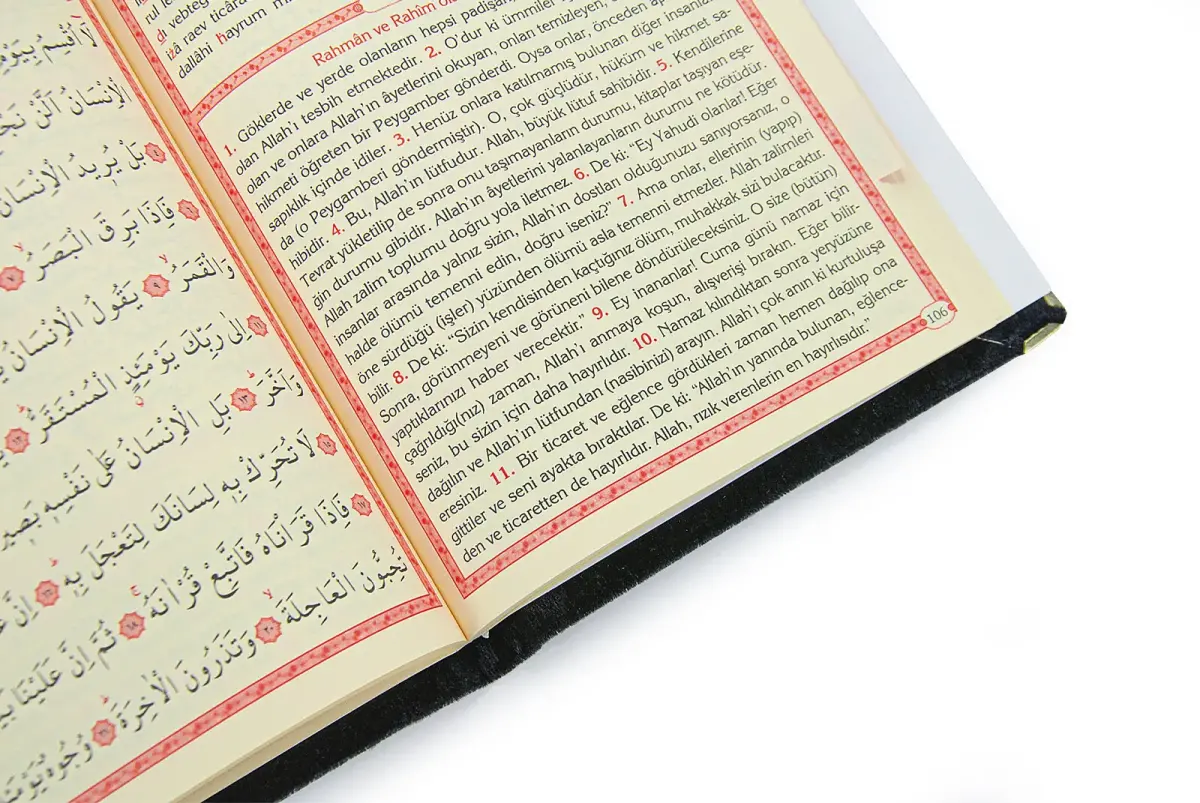 لَٓا اُقْسِمُ بِيَوْمِ
الْاِنْسَانُ اَلَّنْ
٤ بَلْ يُر۪يدُ الْاِنْسَانُ
٦ فَاِذَا بَرِقَ الْبَصَرُۙ ٧
وَالْقَمَرُۙ ٩ يَقُولُ الْاِنْسَانُ
١١ اِلٰى رَبِّكَ يَوْمَئِذٍۨ الْمُسْتَقَرُّۜ ١٢
وَاَخَّرَۜ ١٣ بَلِ الْاِنْسَانُ عَلٰى نَفْسِه۪
١٥ لَا تُحَرِّكْ بِه۪ لِسَانَكَ لِتَعْجَلَ بِه۪ۜ ١٦ اِنَّ
١٧ فَاِذَا قَرَأْنَاهُ فَاتَّبِعْ قُرْاٰنَهُۚ ١٨ ثُمَّ اِنَّ عَلَيْنَا
تُحِبُّونَ الْعَاجِلَةَۙ ٢٠ وَتَذَرُونَ الْاٰخِرَةَۜ ٢١ وُجُوهٌ
rul
dallâhi hayrum
Rahmân ve Rahîm
1. Göklerde ve yerde olanların hepsi padişah,
olan Allah'ı tesbih etmektedir. 2. O'dur ki ümmiler
olan ve onlara Allah'ın âyetlerini okuyan, onları temizleyen,
hikmeti öğreten bir Peygamber gönderdi. Oysa onlar, önceden
sapıklık içinde idiler. 3. Henüz onlara katılmamış bulunan diğer insanlar
da (o Peygamberi göndermiştir). O, çok güçlüdür, hüküm ve hikmet sa-
hibidir. 4. Bu, Allah'ın lütfudur. Allah, büyük lütuf sahibidir. 5. Kendilerine
Tevrat yükletilip de sonra onu taşımayanların durumu, kitaplar taşıyan eşe-
ğin durumu gibidir. Allah'ın âyetlerini yalanlayanların durumu ne kötüdür.
Allah zalim toplumu doğru yola iletmez. 6. De ki: "Ey Yahudi olanlar! Eğer
insanlar arasında yalnız sizin, Allah'ın dostları olduğunuzu sanıyorsanız, o
halde ölümü temenni edin, doğru iseniz?" 7. Ama onlar, ellerinin (yapıp)
öne sürdüğü (işler) yüzünden ölümü asla temenni etmezler. Allah zalimleri
bilir. 8. De ki: "Sizin kendisinden kaçtığınız ölüm, muhakkak sizi bulacaktır.
Sonra, görünmeyeni ve görüneni bilene döndürüleceksiniz. O size (bütün)
yaptıklarınızı haber verecektir." 9. Ey inananlar! Cuma günü namaz için
çağrıldığı(nız) zaman, Allah'ı anmaya koşun, alışverişi bırakın. Eğer bilir-
seniz, bu sizin için daha hayırlıdır. 10. Namaz kılındıktan sonra yeryüzüne
dağılın ve Allah'ın lütfundan (nasibinizi) arayın. Allah'ı çok anın ki kurtuluşa
eresiniz. 11. Bir ticaret ve eğlence gördükleri zaman hemen dağılıp ona
gittiler ve seni ayakta bıraktılar. De ki: "Allah'ın yanında bulunan, eğlence-
den ve ticaretten de hayırlıdır. Allah, rızık verenlerin en hayırlısıdır."
106